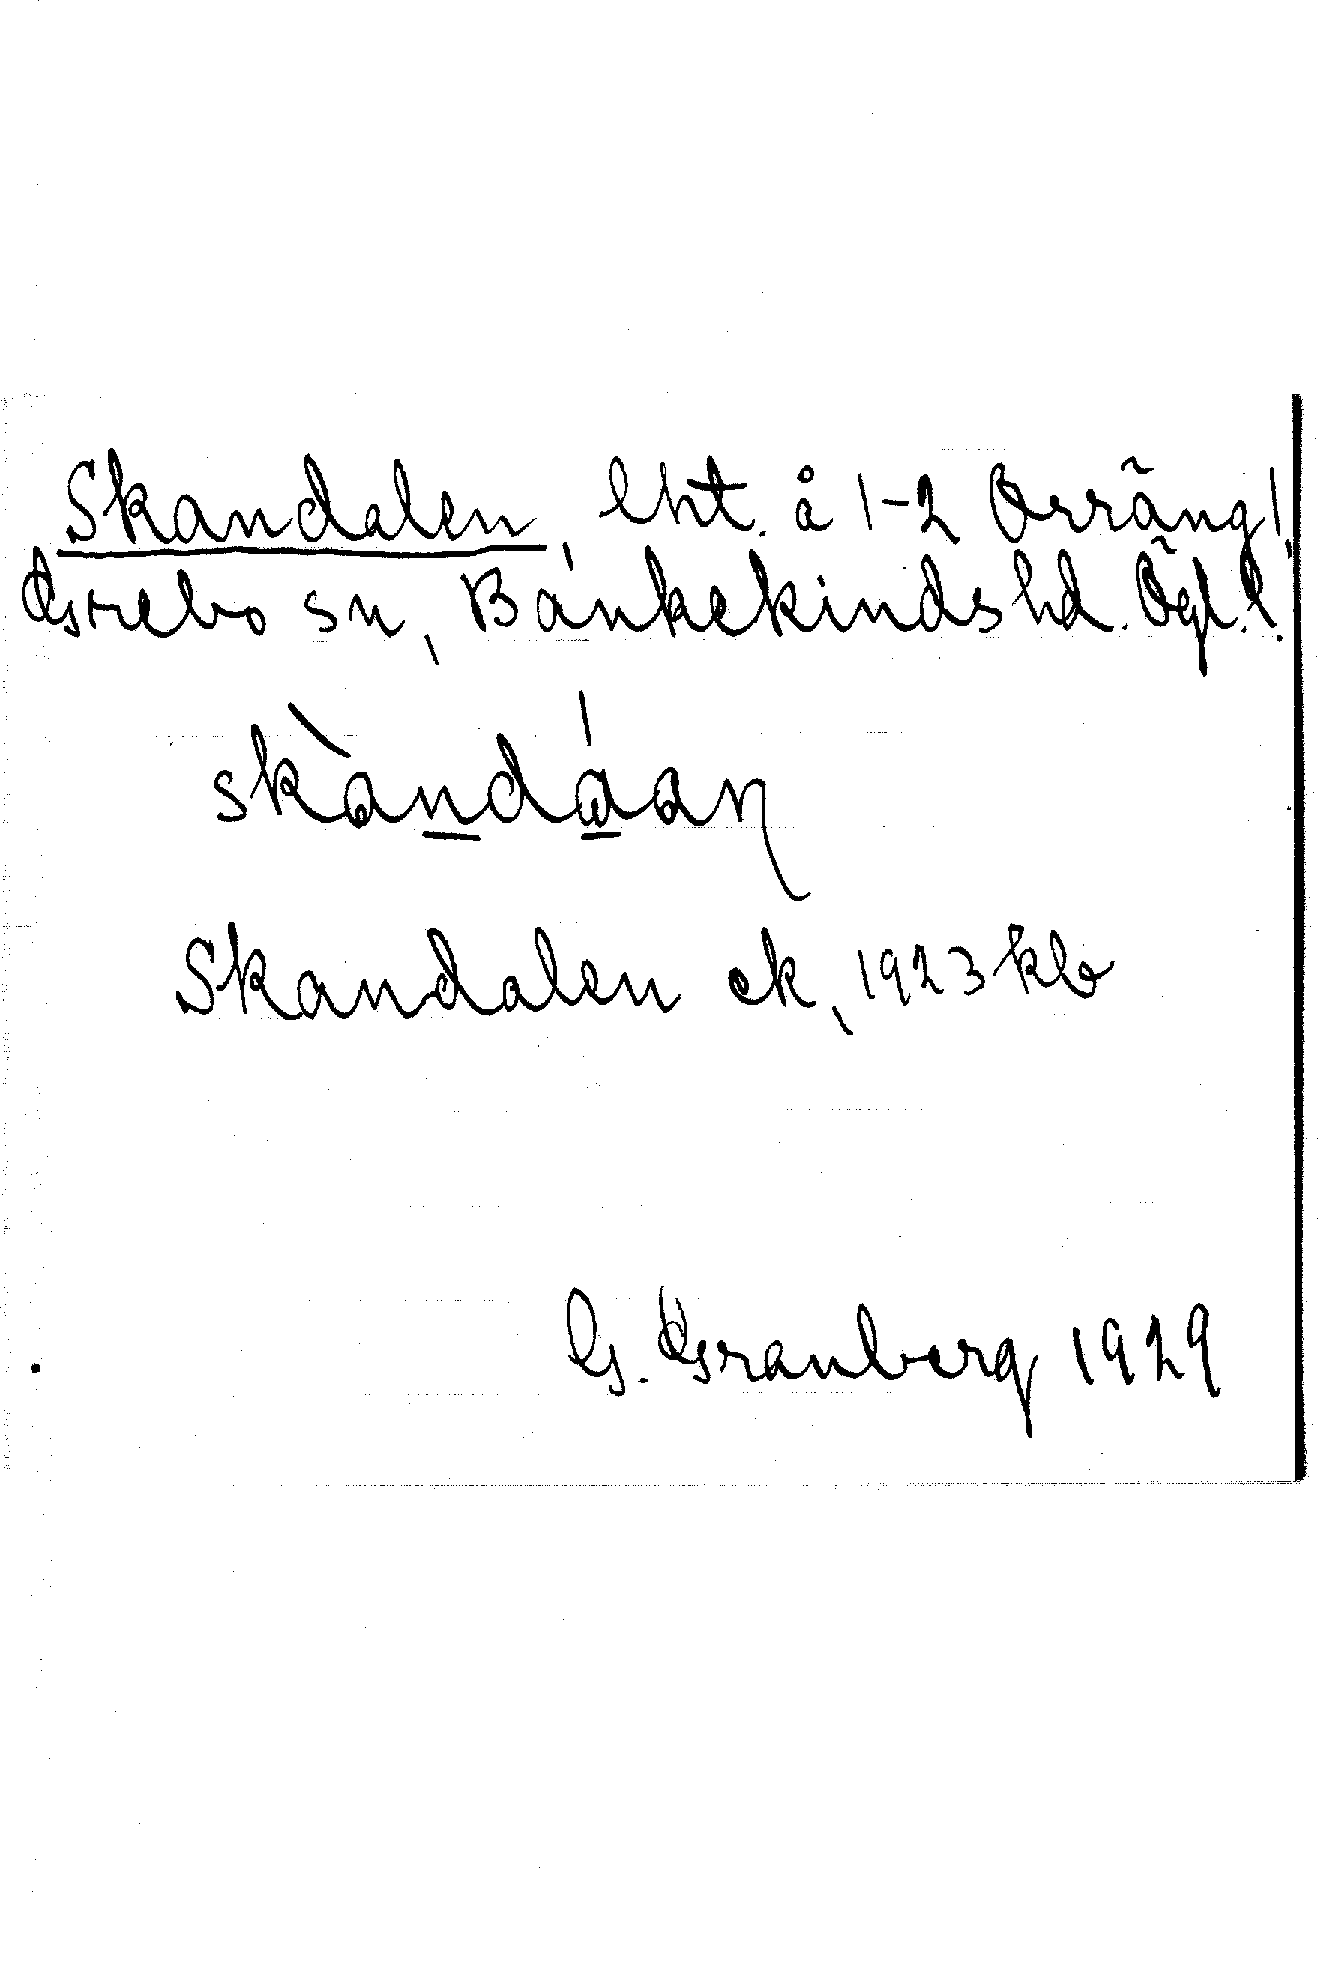 Skandalen, lht. å 1-2 Orräng,
Grebo sn, Bankekinds hd. Ögl. l.
skàndáan
Skandalen ek, 1923 kb
G. Granberg 1929